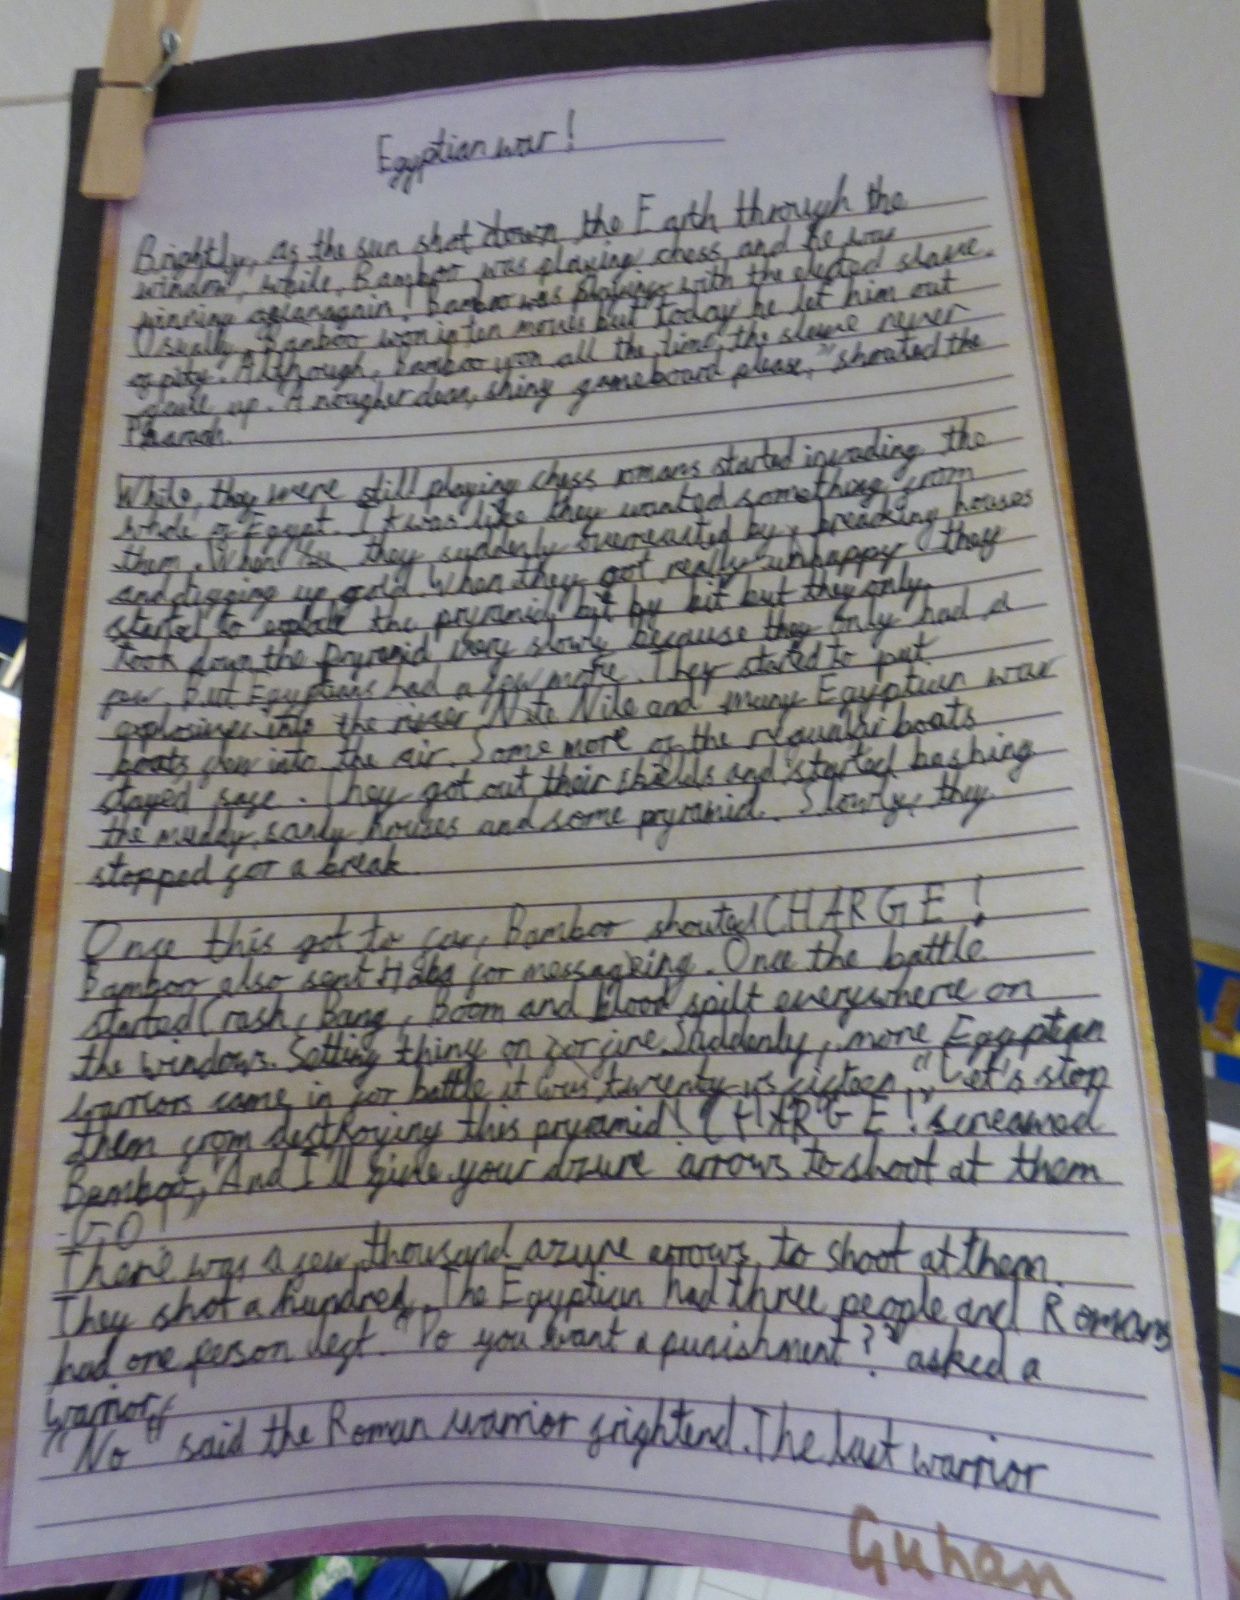 Egyptian war!
Brightly, as the sun shot down the Earth through the
window, while, Bamboo was playing chess, and he was
winning again! Bamboo was playing with the elected slave.
Usually, Bamboo won in ten moves but today he let him out
of pity. Although, bamboo won all the time, the slave never
gave up. A nougher clean, shiny gameboard please," shouted the
Pharaoh.
While, they were still playing chess romans started invading the
whole of Egypt. It was like they wanted something from
them. When they suddenly overreacted by, breacking houses
and digging up gold. When they got really unhappy they
started to explode the pryramid, bit by bit but they only
took down the pryramid very slowly because they only had a
few, but Egyptians had a few more. They started to put
explosives into the river Nile and many Egyptian war
boats flew into the air. Some more of the boats
stayed safe. They got out their shields and started bashing
the muddy, sandy houses and some pryramid. Slowly, they
stopped for a break.
Once this got to far, Bamboo shouted CHARGE!
Bamboo also sent for messageing. Once the battle
started Crash, Bang, Boom and blood spilt everywhere on
the windows. Setting thing on for fire. Suddenly, more Egyptian
warriors came in for battle it was twenty vs sixteen. "Let's stop
them from destroying this pryramid! CHARGE!" screamed
Bamboo, "And I'll give your azure arrows to shoot at them
GO!"
There was a few thousand azure arrows to shoot at them.
They shot a hundred. The Egyptian had three people and Romans
had one person left. "Do you want a punishment?" asked a
warrior.
"No" said the Roman warrior frightend. The last warrior
Guhan